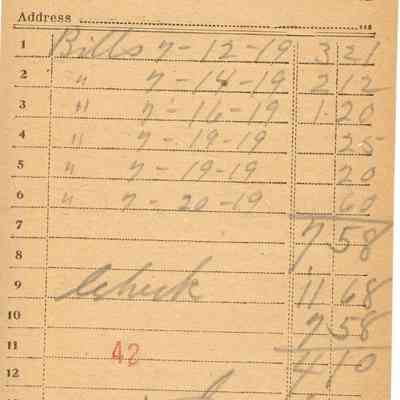 Address
1 Bills 7-12-19 3 21
2 " 7-14-19 2 12
3 " 7-16-19 1.20
4 " 7-19-19 25
5 " 7-19-19 20
6 " 7-20-19 60
7 7 58
8
9 Check 11 68
10 7 58
11 42 4 10
12